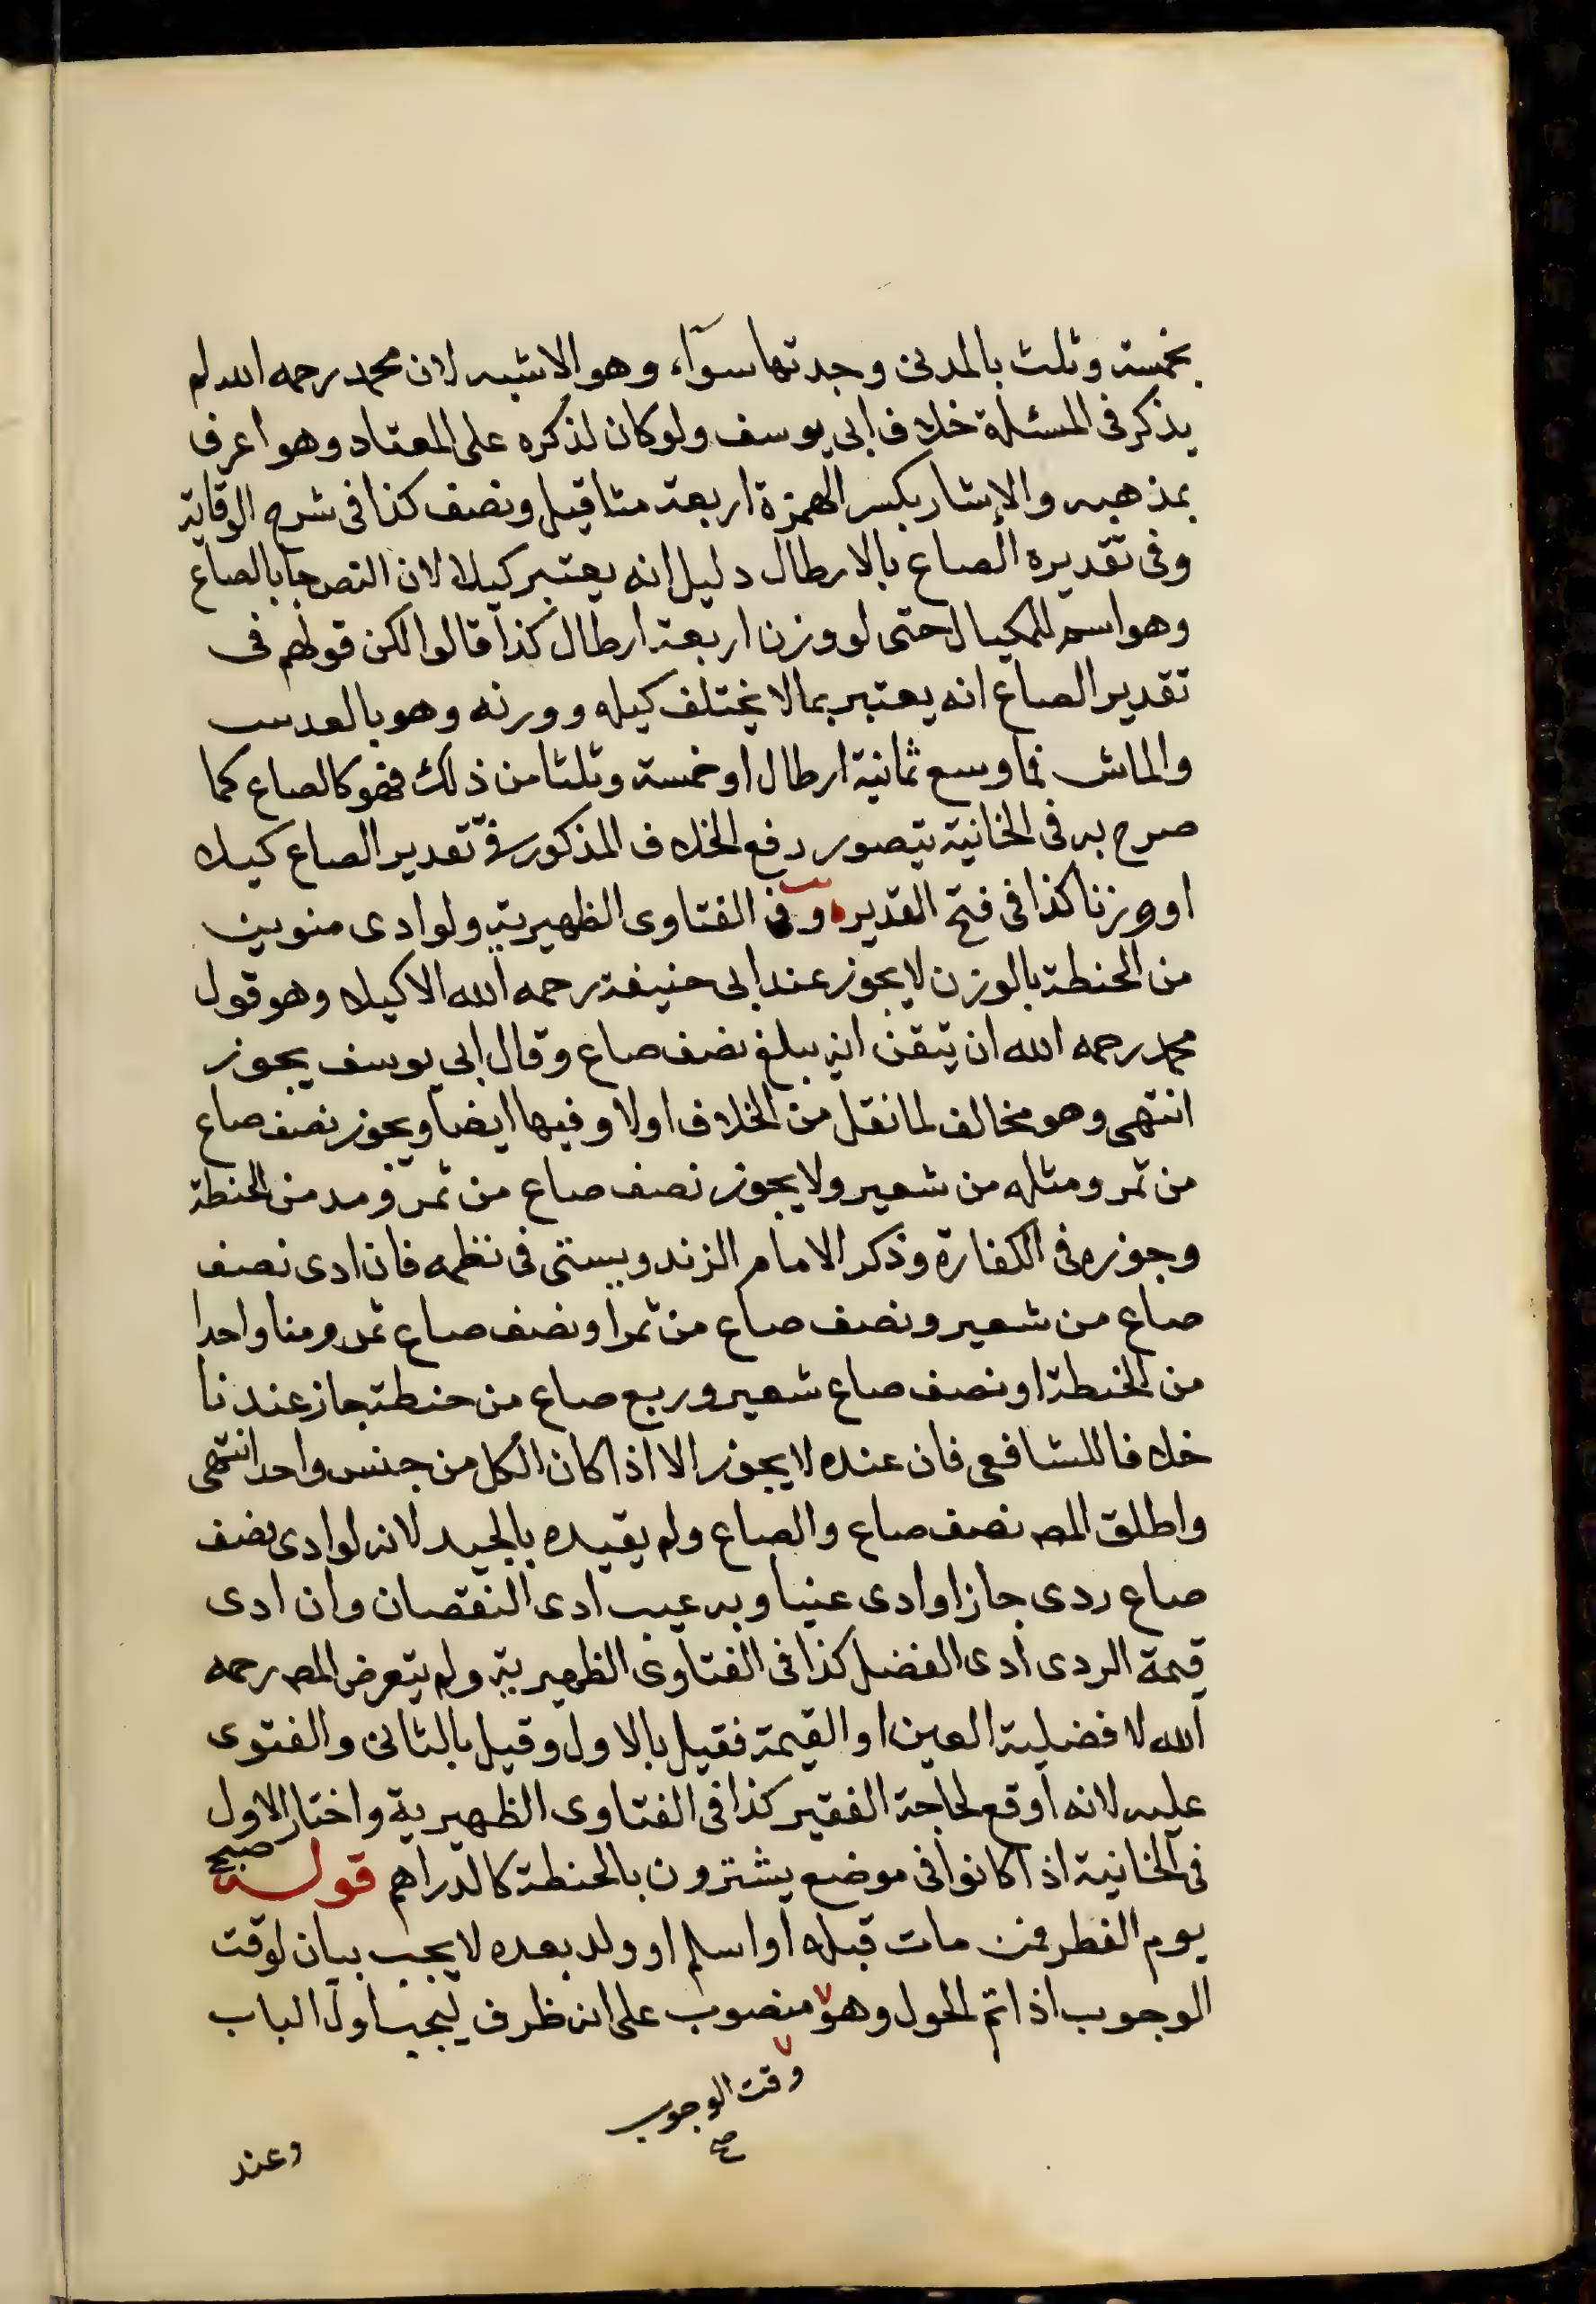 بخمسة وثلث بالمدنى وجدتها سوآء وهو الاشبه لان محمد رحمه الله لم
يذكر فى المسئلة خلاف ابى يوسف ولو كان لذكره على المعتاد وهو اعرف
بمذهبه والإستار بكسر الهمزة اربعة مثاقيل ونصف كذا فى شرح الوقاية
وفى تقديره الصاع بالارطال دليل انه يعتبر كيلا لان النص جا بالصاع
وهو اسم للمكيال حتى لو وزن اربعة ارطال كذا قالوا لكن قولهم فى
تقدير الصاع انه يعتبر بما لا يختلف كيله وورنه وهو بالعدس
والماش فما وسع ثمانية ارطال او خمسة وثلثا من ذلك فهو كالصاع كما
صرح به فى الخانية يتصور رفع الخلاف المذكور فى تقدير الصاع كيلا
او وزنا كذا فى فتح القدير وفى الفتاوى الظهيرية ولو ادى منوين
من الحنطة بالوزن لا يجوز عند ابى حنيفة رحمه الله الا كيلا وهو قول
محمد رحمه الله ان تيقن انه يبلغ نصف صاع وقال ابي يوسف يجوز
انتهى وهو مخالف لما نقل من الخلاف اولا وفيها ايضا ويجوز نصف صاع
من تمر ومثله من شعير ولا يجوز نصف صاع من تمر ومد من الحنطة
وجوزه فى الكفارة وذكر الامام الزندويستى فى نظمه فان ادى نصف
صاع من شعير ونصف صاع من تمر او نصف صاع تمر ومنا واحدا
من الحنطة او نصف صاع شعير وربع صاع من حنطة جاز عندنا
خلافا للشافعى فان عنده لا يجوز الا اذا كان الكل من جنس واحد انتهى
واطلق المص نصف صاع والصاع ولم يقيده بالجيد لانه لو ادى نصف
صاع ردى جاز او ادى عينا وبه عيب ادى النقصان وان ادى
قيمة الردى ادى الفضل كذا فى الفتاوى الظهيرية ولم يتعرض المص رحمه
الله لافضلية العين او القيمة فقيل بالاول وقيل بالثانى والفتوى
عليه لانه اوقع لحاجة الفقير كذا فى الفتاوى الظهيرية واختار الاول
فى الخانية اذا كانوا فى موضع يشترون بالحنطة كالدراهم قوله صبح
يوم الفطر فمن مات قبله او اسلم او ولد بعده لا يجب بيان لوقت
الوجوب اذا تم الحول وهو منصوب على انه ظرف ليجب اول الباب
وقت الوجوب
صح
وعند